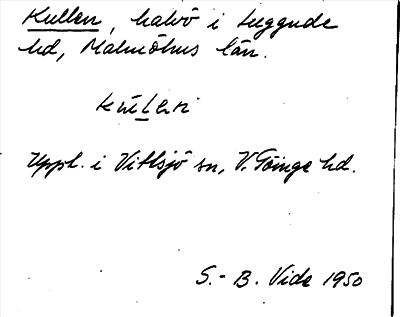 Kullen, halvö i Luggude
hd, Malmöhus län.
Uppl. i Vittsjö sn, V. Göinge hd.
S.-B. Vide 1950